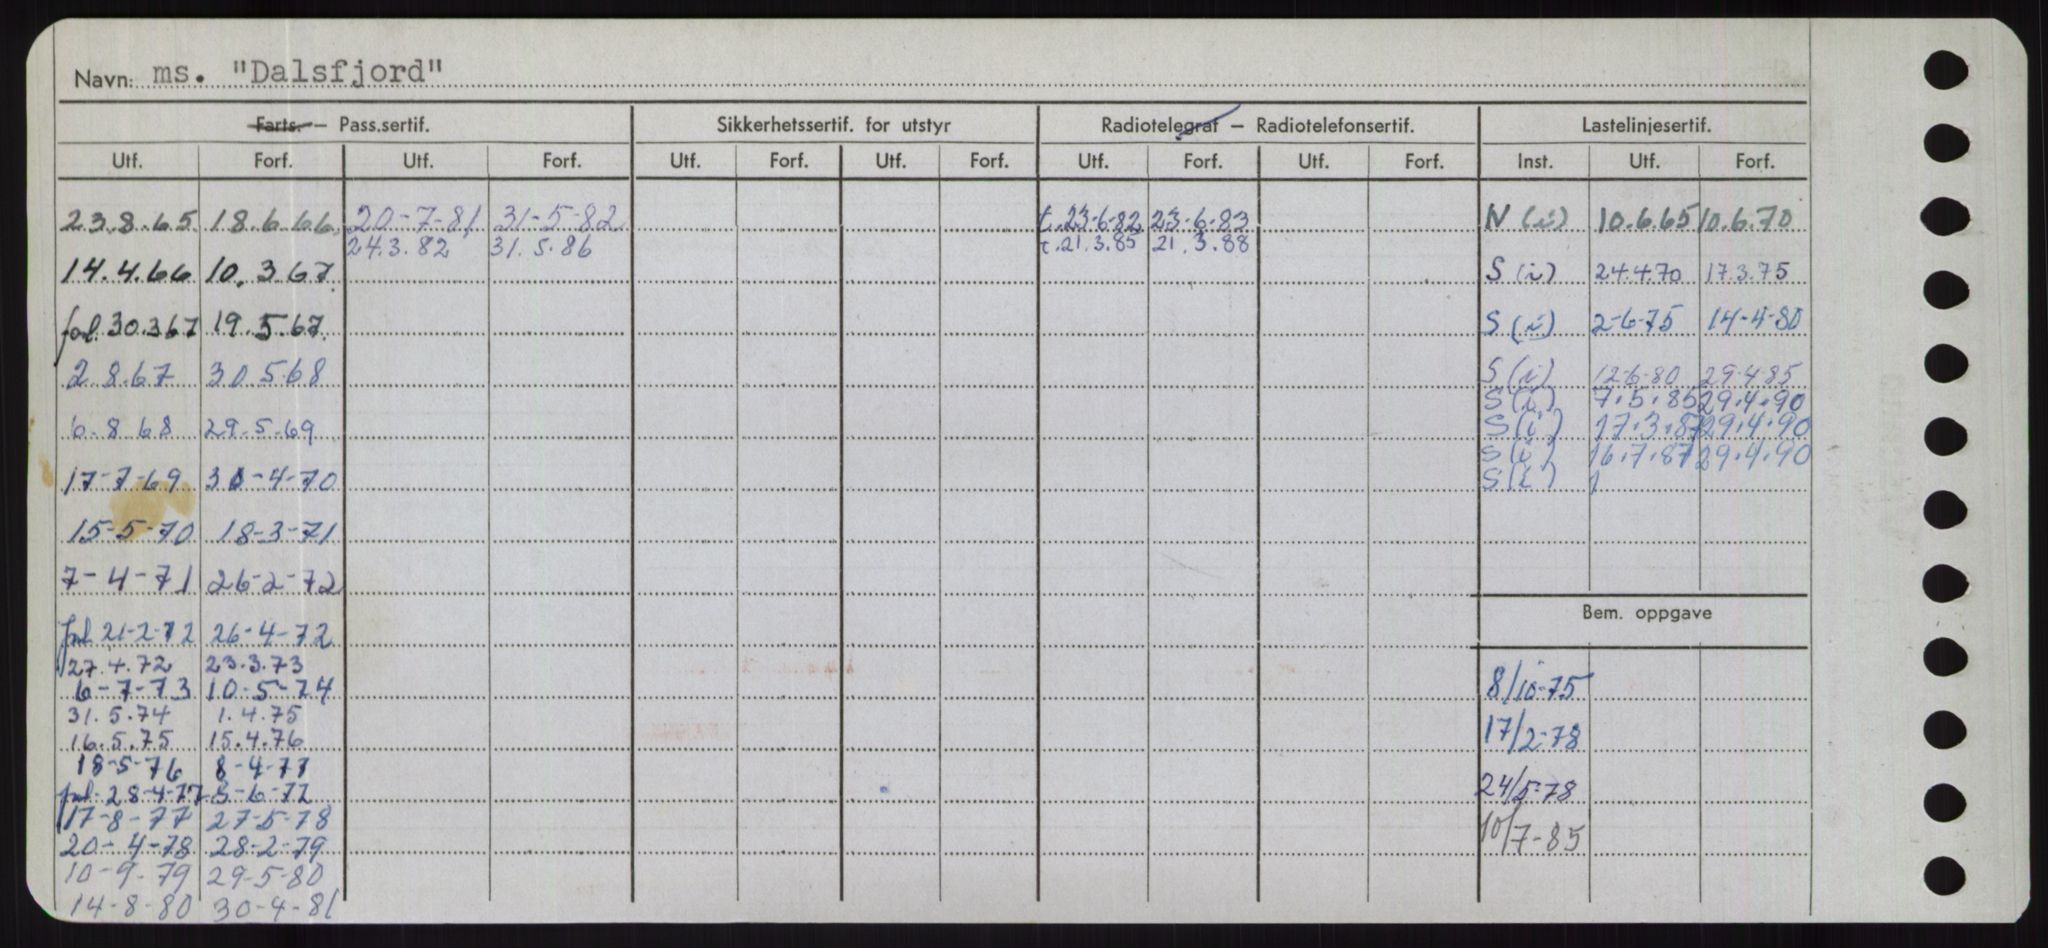 Navn: ms. "Dalsfjord"
Farts. — Pass.sertif. Sikkerhetssertif. for utstyr Radiotelegraf — Radiotelefonsertif. Lastelinjesertif.
Utf. Forf. Utf. Forf. Utf. Forf. Utf. Forf. Utf. Forf. Utf. Forf. Inst. Utf. Forf.
23.8.65 18.6.66 20-7-81 31-5-82 t. 23-6-82 23-6-83 N (i) 10.6.65 10.6.70
24.3.82 31.5.86 t. 21.3.85 21.3.88
14.4.66 10.3.67 S (i) 24.4.70 17.3.75
forl. 30.3.67 19.5.67 S (i) 2-6-75 14-4-80
2.8.67 30.5.68 S (i) 12-6-80 29.4.85
S (i) 7.5.85 29.4.90
6.8.68 29.5.69 S (i) 17.3.87 29.4.90
S (i) 16.7.87 29.4.90
17-7-69 30-4-70 S (i) 1
15-5-70 18-3-71
7-4-71 26-2-72
Bem. oppgave
forl. 21-2-72 26-4-72
27.4.72 23.3.73
6-7-73 10-5-74 8/10-75
31.5.74 1.4.75
16.5.75 15.4.76 17/2-78
18-5-76 8-4-77
forl. 28-4-77 3-6-77 24/5-78
17-8-77 27-5-78
20-4-78 28-2-79 10/7-85
10-9-79 29-5-80
14-8-80 30-4-81